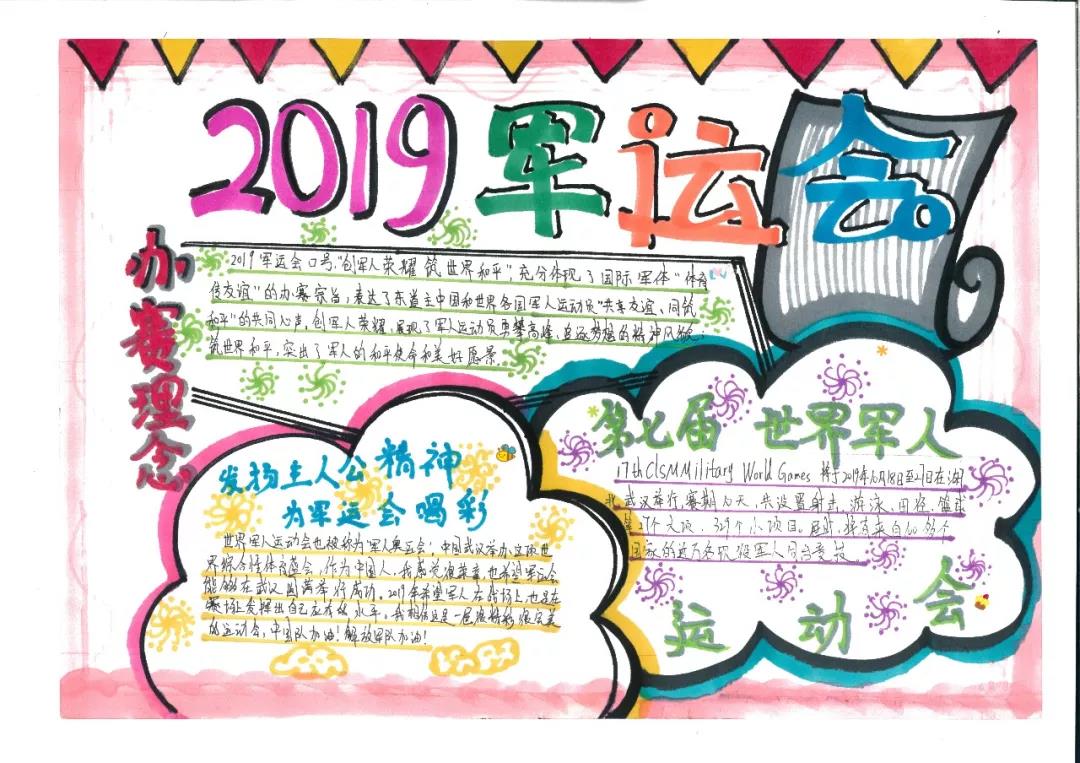 2019军运会
办赛理念
2019军运会口号"创军人荣耀 筑世界和平"充分体现了国际军体"体育
传友谊"的办赛宗旨,表达了东道主中国和世界各国军人运动员"共享友谊,同筑
和平"的共同心声,创军人荣耀,展现了军人运动员勇攀高峰,追逐梦想的精神风貌;
筑世界和平,突出了军人的和平使命和美好愿景
发扬主人公精神
为军运会喝彩
世界军人运动会也被称为"军人奥运会",中国武汉举办这项世
界综合性体育盛会,作为中国人,我感觉很荣幸,也希望军运会
能够在武汉圆满举行成功,2019年希望军人在战场上也是在
赛场上发挥出自己应有的水平,我相信这是一届很精彩很完美
的运动会,中国队加油!解放军队加油!
第七届 世界军人
17th CISM Military World Games 将于2019年10月18日至27日在湖
北武汉举行,赛期10天,共设置射击、游泳、田径、篮球
等27个大项、329个小项目。届时,将有来自100多个
国家的近万名现役军人同台竞技
运动会